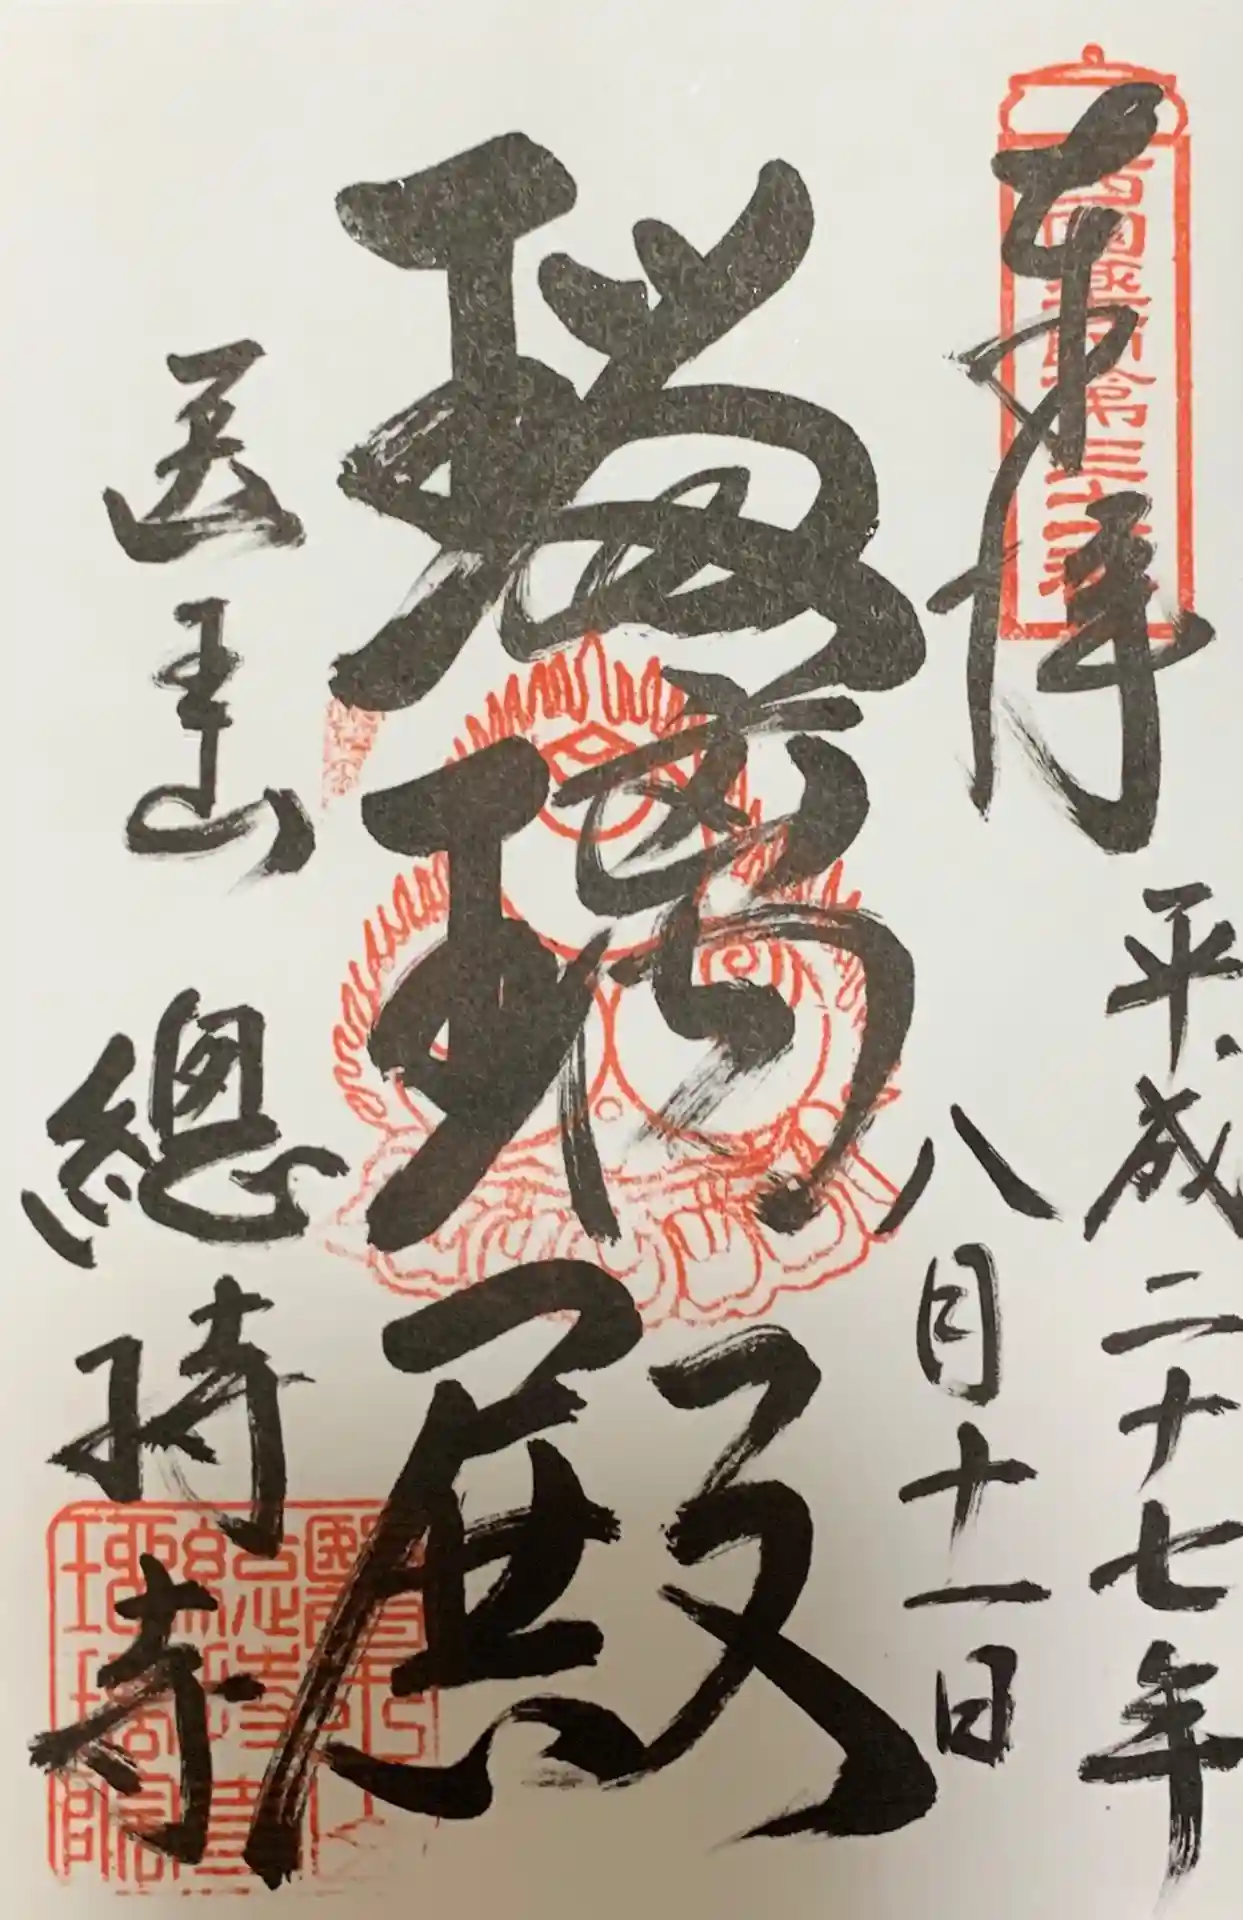 奉拝
平成二十七年
八月十一日
瑠璃殿
医王山
總持寺